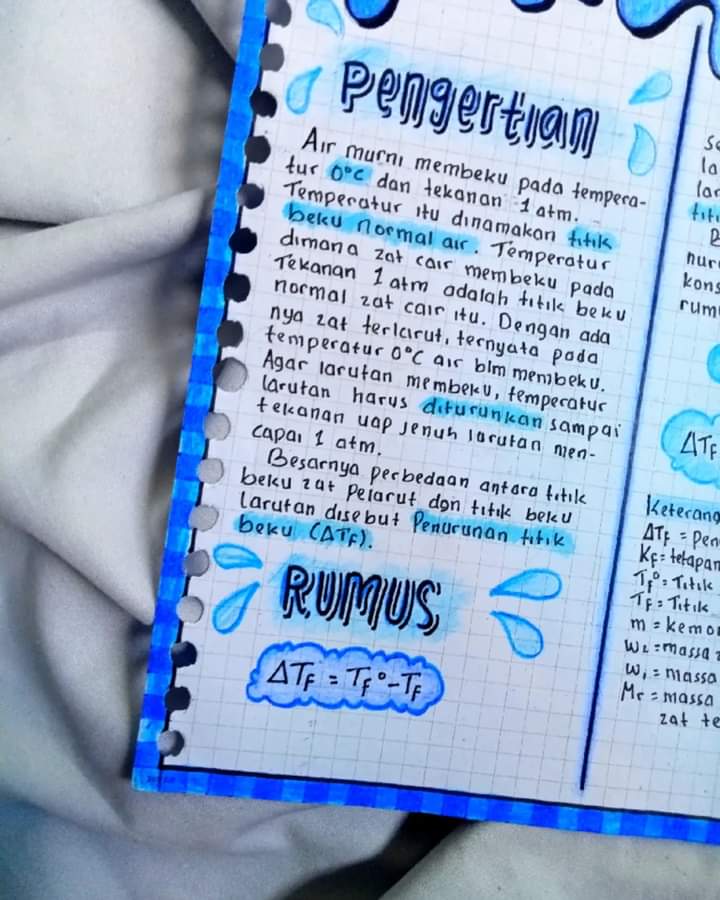 Pengertian
Air murni membeku pada tempera-
tur 0°C dan tekanan 1 atm.
Temperatur itu dinamakan titik
beku normal air. Temperatur
dimana zat cair membeku pada
Tekanan 1 atm adalah titik beku
normal zat cair itu. Dengan ada
nya zat terlarut, ternyata pada
temperatur 0°C air blm membeku.
Agar larutan membeku, temperatur
larutan harus diturunkan sampai
tekanan uap jenuh larutan men-
capai 1 atm.
Besarnya perbedaan antara titik
beku zat pelarut dan titik beku
larutan disebut Penurunan titik
beku (ΔTf).
RUMUS
ΔTf = Tf° - Tf
ΔTf
ΔTf =
Kf = tetapan
Tf° = Titik
Tf = Titik
m =
W2 = massa
W1 = massa
Mr = massa
zat